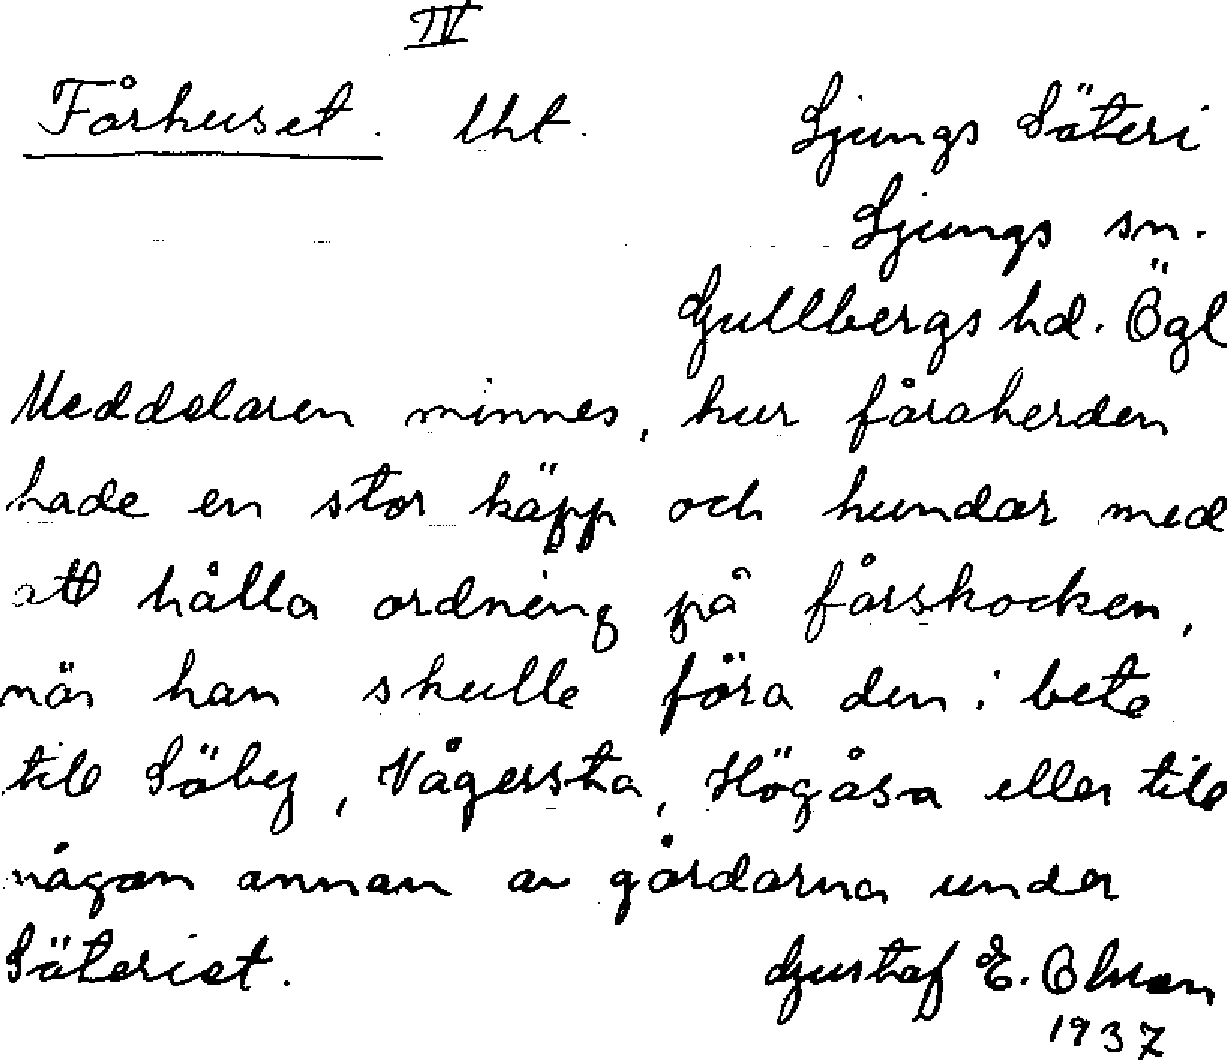 IV
Fårhuset. lht. Ljungs Säteri
Ljungs sn.
Gullbergs hd. Ögl
Meddelaren minnes, hur fåraherden
hade en stor käpp och hundar med
att hålla ordning på fårskocken,
när han skulle föra den i bete
till Säby, Vågersta, Högåsa eller till
någon annan av gårdarna under
Säteriet. Gustaf E. Olson
1937